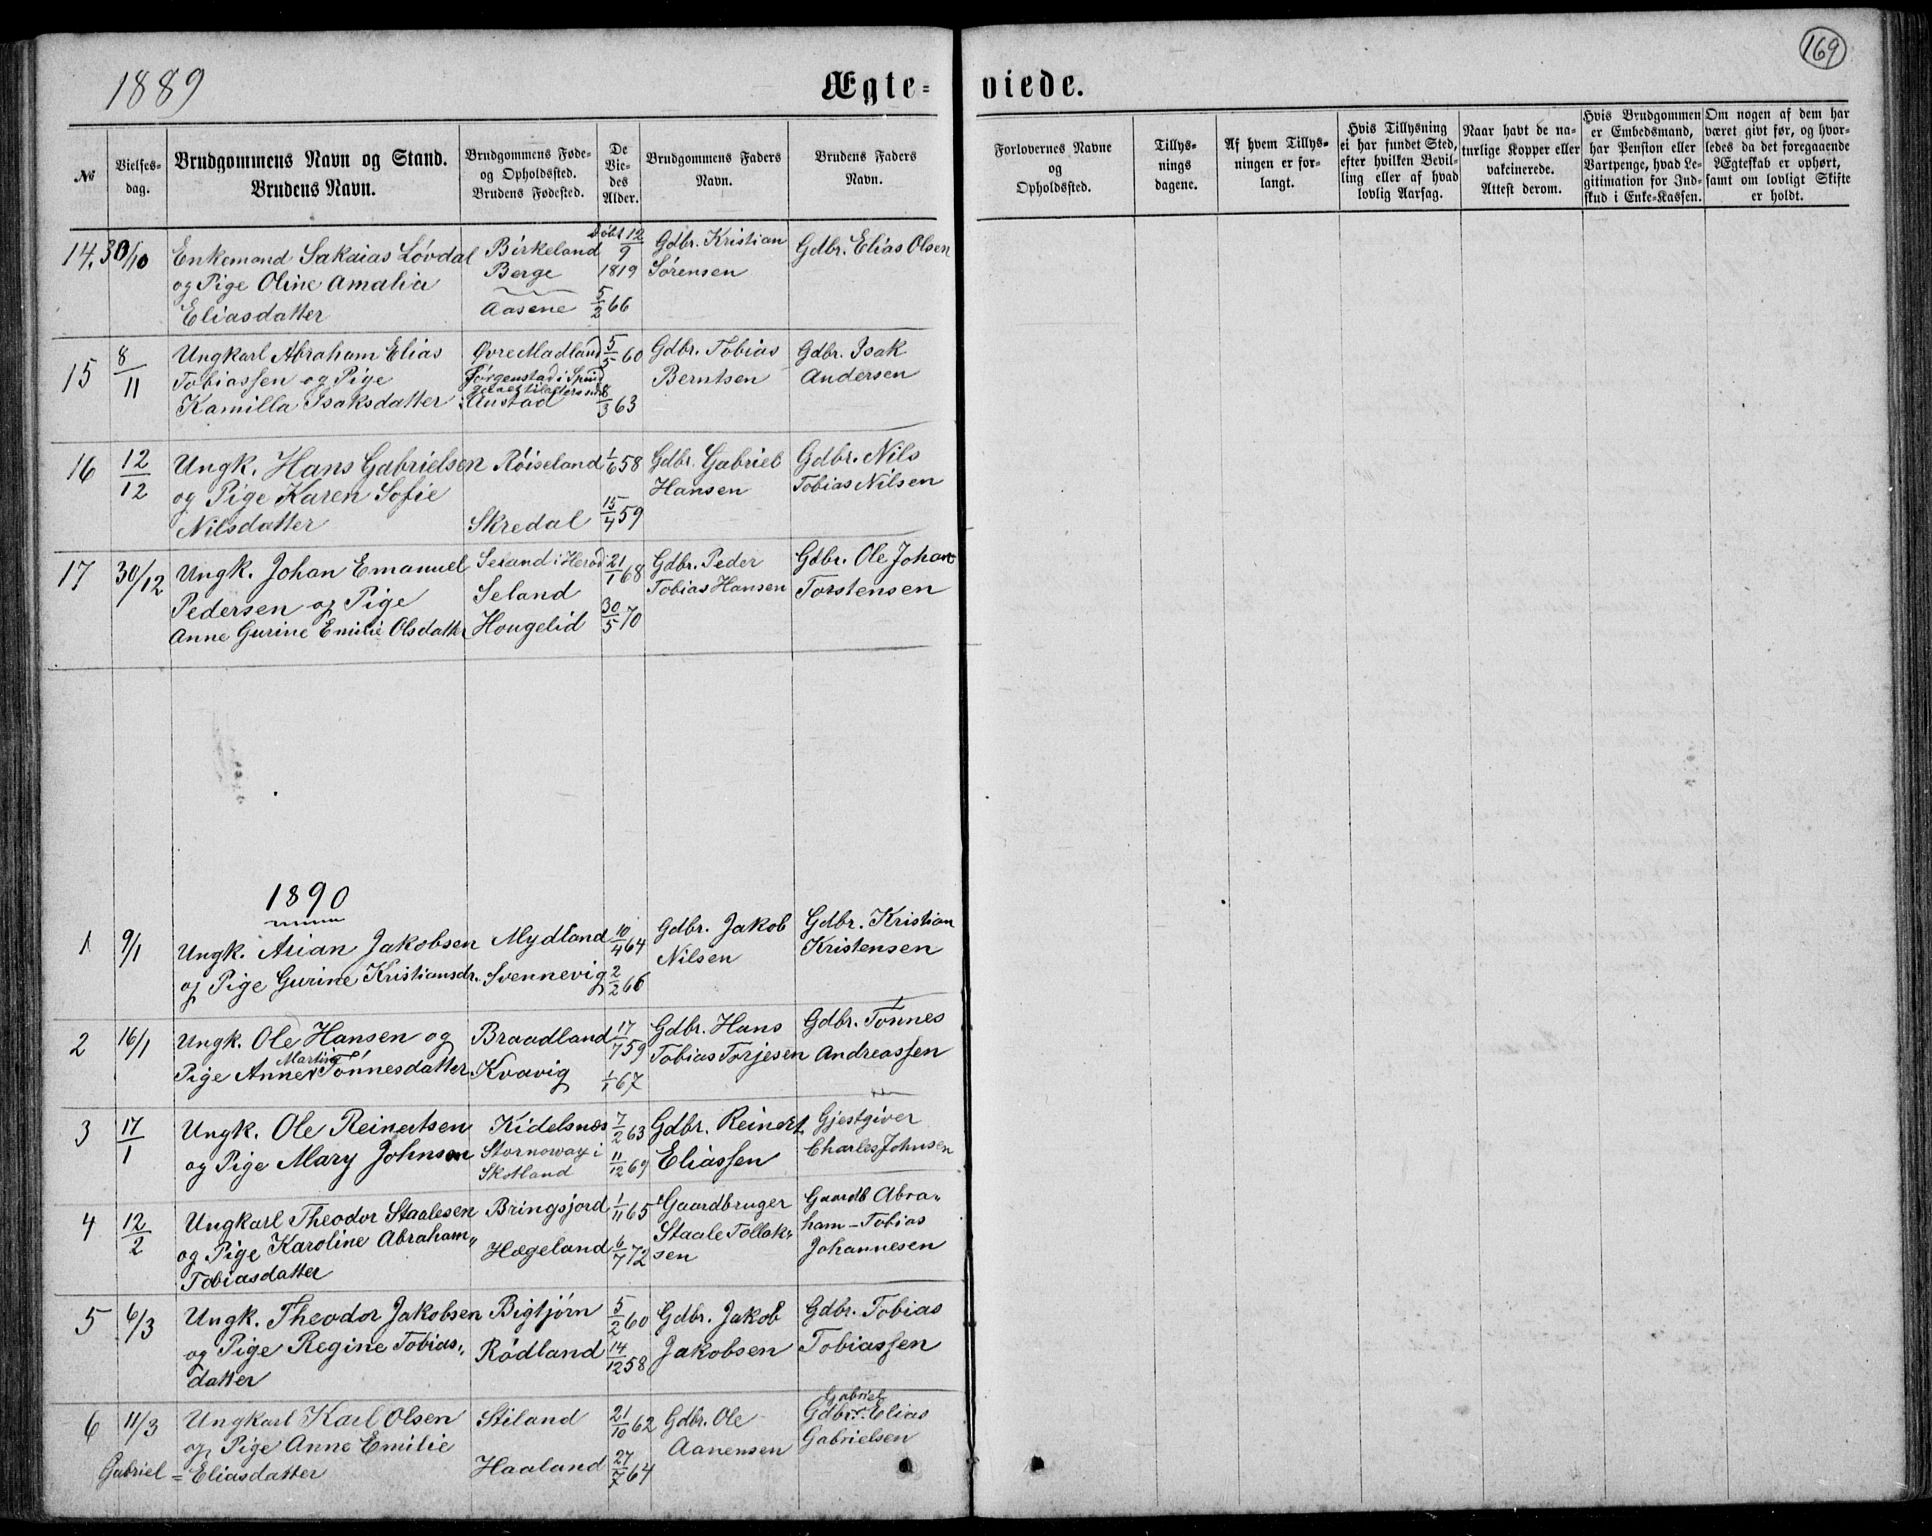 169
1889
Ægte= viede.
No
Vielses-
dag.
Brudgommens Navn og Stand.
Brudens Navn.
Brudgommens Føde-
og Opholdssted.
Brudens Fødested.
De
Vie-
des
Alder.
Brudgommens Faders
Navn.
Brudens Faders
Navn.
Forlovernes Navne
og
Opholdssted.
Tillys-
nings
dagene.
Af hvem Tillys-
ningen er for-
langt.
Hvis Tillysning
ei har fundet Sted,
efter hvilken Bevil-
ling eller af hvad
lovlig Aarsag.
Naar havt de na-
turlige Kopper eller
vakcinerede.
Attest derom.
Hvis Brudgommen
er Embedsmand,
har Pension eller
Vartpenge, hvad Le-
gitimation for Ind-
skud i Enke-Kassen.
Om nogen af dem har
været givt før, og hvor-
ledes da det foregaaende
Ægteskab er ophørt,
samt om lovligt Skifte
er holdt.
14. 30/10 Enkemand Sakaias Løvdal Birkeland Døbt 12/9 Gdbr. Kristian Gdbr. Elias Olsen
og Pige Oline Amalia Berge 1819 Sørensen
Eliasdatter Aasene 5/2 66
15 8/11 Ungkarl Abraham Elias Øvre Madland 5/5 60 Gdbr. Tobias Gdbr. Isak
Tobiassen og Pige Jørgenstad i Spind Berntsen Andersen
Kamilla Isaksdatter Austad 8/3 63
16 12/12 Ungk. Hans Gabrielsen Røiseland 1/6 58 Gdbr. Gabriel Gdbr. Nils
og Pige Karen Sofie Hansen Tobias Nilsen
Nilsdatter Skredal 15/4 59
17 30/12 Ungk. Johan Emanuel Seland i Herad 21/1 68 Gdbr. Peder Gdbr. Ole Johan
Pedersen og Pige Seland Tobias Hansen Torstensen
Anne Gurine Emilie Olsdatter Hougelid 30/5 70
1890
1 9/1 Ungk. Arian Jakobsen Mydland 10/4 64 Gdbr. Jakob Gdbr. Kristian
og Pige Gurine Kristiansdr. Svennevig 2/2 66 Nilsen Kristensen
2 16/1 Ungk. Ole Hansen og Braadland 17/7 59 Gdbr. Hans Gdbr. Tønnes
Pige Anne Martine Tønnesdatter Kvavig 1/1 67 Tobias Torjesen Andreassen
3 17/1 Ungk. Ole Reinertsen Kidelsnæs 7/2 63 Gdbr. Reinert Gjestgiver
og Pige Mary Johnson Stornoway i 11/12 69 Eliassen Charles Johnsen
Skotland
4 12/2 Ungkarl Theodor Staalesen Bringsjord 1/11 65 Gaardbruger Gaardb Abra„
og Pige Karoline Abraham„ Hægeland 6/7 72 Staale Tollak„ ham-Tobias
Tobiasdatter sen Johannesen
5 6/3 Ungk. Theodor Jakobsen Bigtjørn 5/2 60 Gdbr. Jakob Gdbr. Tobias
og Pige Regine Tobias„ Rødland 14/12 58 Jakobsen Tobiassen
datter
6 11/3 Ungkarl Karl Olsen Stiland 21/10 62 Gdbr. Ole Gdbr. Gabriel Elias
og Pige Anne Emilie Aanensen Gabrielsen
Gabriel = Eliasdatter Haaland 27/7 64